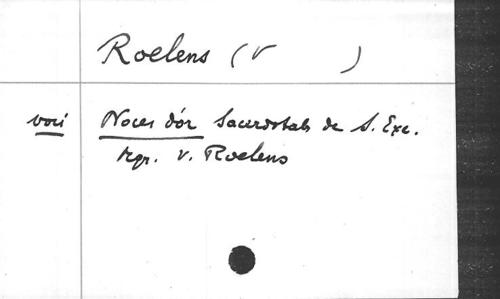 Roelens (V )
voir Noces d'or Sacerdotales de S. Exc.
Mgr. V. Roelens